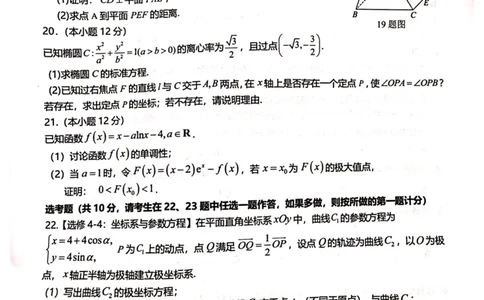 (2)求点A到平面PEF的距离.
E
B
C
19题图
20.（本小题12分）
已知椭圆C: x²/a² + y²/b² =1(a>b>0)的离心率为 √3/2 ，且过点(-√3,-3/2).
(1)求椭圆C的标准方程.
(2)已知过右焦点F的直线l与C交于A,B两点,在x轴上是否存在一个定点P,使∠OPA=∠OPB?
若存在，求出定点P的坐标；若不存在，请说明理由.
21.（本小题12分）
已知函数f(x)=x-alnx-4,a∈R.
（1）讨论函数f(x)的单调性；
（2）当a=1时，令F(x)=(x-2)eˣ-f(x)，若x=x₀为F(x)的极大值点，
证明：0<F(x₀)<1.
选考题（共10分，请考生在22、23题中任选一题作答，如果多做，则按所做的第一题计分）
22.【选修4-4：坐标系与参数方程】在平面直角坐标系xOy中，曲线C₁的参数方程为
{x=4+4cosα, y=4sinα, P为C₁上的动点，点Q满足OQ=1/2OP，设点Q的轨迹为曲线C₂，以O为极
点，x轴正半轴为极轴建立极坐标系.
(1) 写出曲线C₂的极坐标方程；